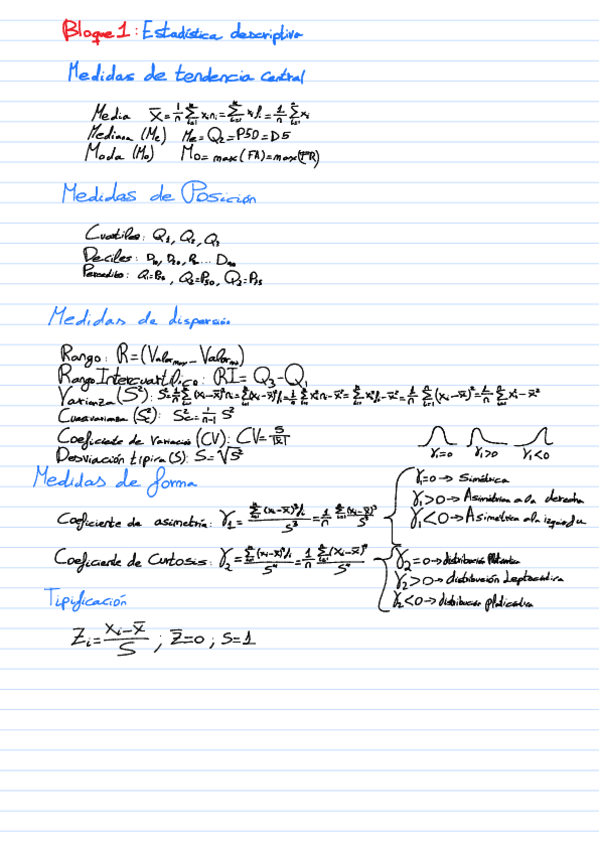 Bloque 1: Estadística descriptiva
Medidas de tendencia central
Media x̄ = 1/n Σ xᵢnᵢ = Σ xᵢfᵢ = 1/n Σ xᵢ
Mediana (Me) Me = Q₂ = P50 = D5
Moda (Mo) Mo = max(FA) = max(FR)
Medidas de Posición
Cuartiles: Q₁, Q₂, Q₃
Deciles: D₁₀, D₂₀, ... D₉₀
Percentiles: Q₁=P₂₅, Q₂=P₅₀, Q₃=P₇₅
Medidas de dispersión
Rango: R = (Valor max - Valor min)
Rango Intercuartílico: RI = Q₃ - Q₁
Varianza (S²): S² = 1/n Σ (xᵢ-x̄)²nᵢ = Σ (xᵢ-x̄)²fᵢ = 1/n Σ xᵢ²nᵢ - x̄² = Σ xᵢ²fᵢ - x̄² = 1/n Σ (xᵢ-x̄)² = 1/n Σ xᵢ² - x̄²
Cuasivarianza (Sc²): Sc² = n/n-1 S²
Coeficiente de Variación (CV): CV = S/|x̄|
γ₁=0 γ₁>0 γ₁<0
Desviación típica (S): S = √S²
Medidas de forma
γ₁=0 → Simétrica
γ₁>0 → Asimétrica a la derecha
Coeficiente de asimetría: γ₁ = Σ (xᵢ-x̄)³fᵢ / S³ = 1/n Σ (xᵢ-x̄)³ / S³
γ₁<0 → Asimetrica a la izquierda
Coeficiente de Curtosis: γ₂ = Σ (xᵢ-x̄)⁴fᵢ / S⁴ = 1/n Σ (xᵢ-x̄)⁴ / S⁴
γ₂=0 → distribución
γ₂>0 → distribución Leptocúrtica
γ₂<0 → distribución platicúrtica
Tipificación
Zᵢ = xᵢ-x̄ / S ; z̄=0 ; S=1